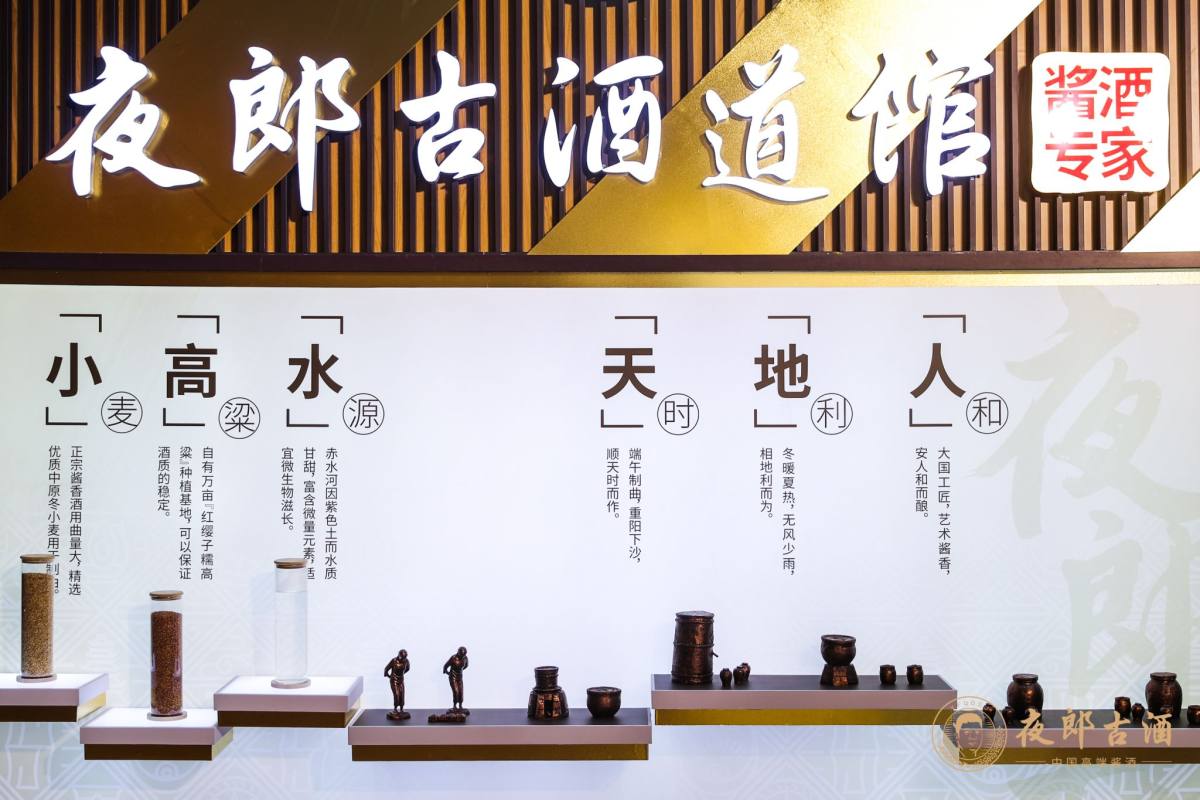 夜郎古酒道馆
酱酒
专家
「小」麦
正宗酱香酒用曲量大，精选
优质中原冬小麦用于制曲。
「高」粱
自有万亩『红缨子糯高
粱』种植基地，可以保证
酒质的稳定。
「水」源
赤水河因紫色土而水质
甘甜，富含微量元素，适
宜微生物滋长。
「天」时
端午制曲，重阳下沙，
顺天时而作。
「地」利
冬暖夏热，无风少雨，
相地利而为。
「人」和
大国工匠，艺术酱香，
安人和而酿。
夜郎
夜郎古酒
中国高端酱酒